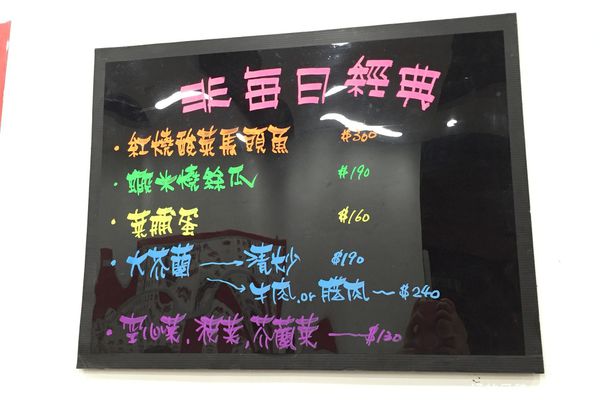 非每日經典
·紅燒酸菜馬頭魚 $360
·蝦米燒絲瓜 $190
·菜脯蛋 $160
·大芥蘭→清炒 $190
→牛肉.or 臘肉~$240
·空心菜.菠菜,芥蘭菜—$130